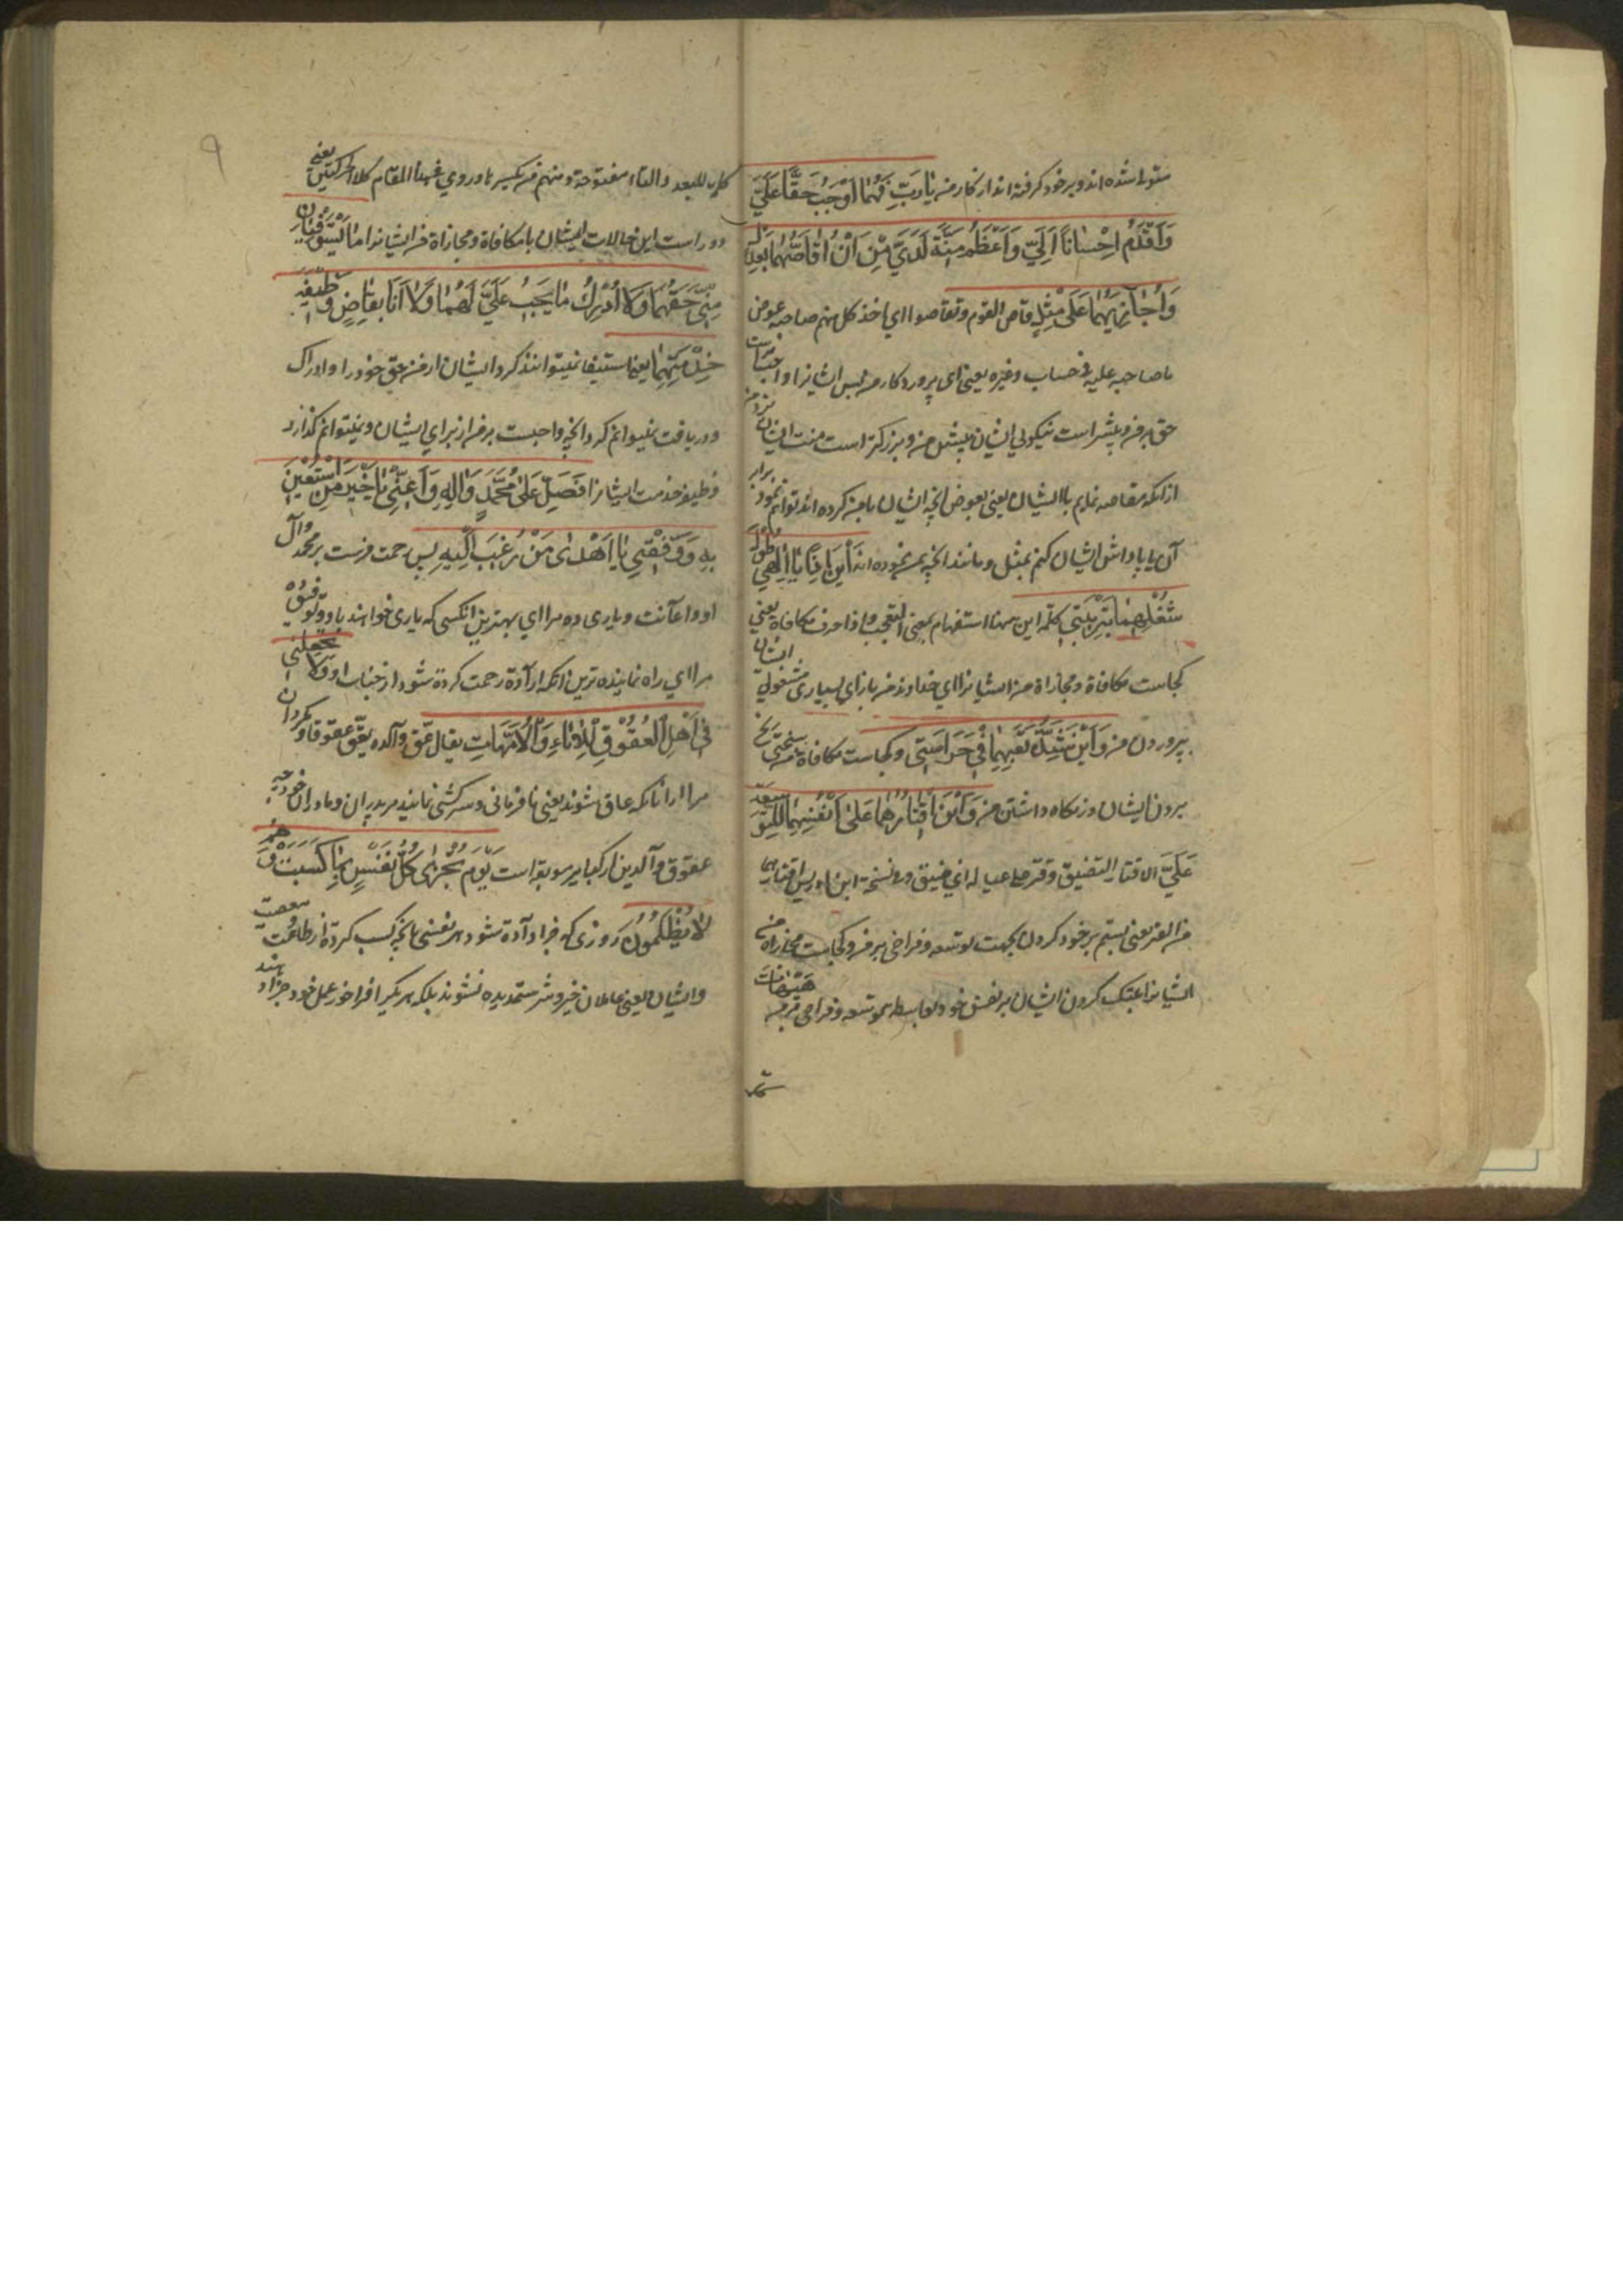 متولد شده اند و بر خود گرفته اند از کار من یا رَبِّ فَهُمَا اَوْجَبُ حَقًّا عَلَيَّ
وَاَقْدَمُ اِحْسَانًا اِلَيَّ وَاَعْظَمُ مِنَّةً لَدَيَّ مِنْ اَنْ اُقَاصَّهُمَا بِعَدْلٍ
وَاُجَازِيَهُمَا عَلَى مِثْلٍ قاص القوم و تقاصوا اي اخذ کل منهم صاحبه عوض
ما صاحبه علیه فی حساب و غیره یعنی ای پروردکار من پس ایشانرا واجبتر است
حق بر من و پیشتر است نیکوئی ایشان پیش من و بزرکتر است منت ایشان نزد من
از انکه مقاصه نمایم با ایشان یعنی بعوض انچه ایشان با من کرده اند توانم نمود برابر
آن یا پاداش ایشان کنم بمثل و مانند انچه بمن نموده اند اَيْنَ اِذًا يَا اِلٰهِي طُوْلُ
شُغْلِهِمَا بِتَرْبِيَتِي کلمه این ههنا استفهام بمعنی التعجب و اذا حرف مکافاة یعنی
کجاست مکافاة و مجازاة من ایشانرا ای خداوند من بازای بسیاری مشغولی ایشان
بپروردن من وَاَيْنَ شِدَّةُ تَعَبِهِمَا فِي حَرَاسَتِي و کجاست مکافاة من سختی رنج
بردن ایشان در نکاه داشتن من وَاَيْنَ اِقْتَارُهُمَا عَلَى اَنْفُسِهِمَا لِلتَّوْسِعَةِ
عَلَيَّ الاقتار التضییق و قتر علی عیاله ای ضیق و در نسخه ابن ادریس اقتارهما
من القتر یعنی ستم بر خود کردن بجهت توسعه و فراخی بر من و کجاست مجازاة من
ایشانرا بتنک کردن ایشان بر نفس خود بواسطه توسعه و فراخی بر من هَيْهَاتَ
۹
کلمه للبعد و التاء مفتوحة و منهم من یکسر ها و روي فی هذا المقام کلا الحرکتین یعنی
دور است این حالات ایشان با مکافاة و مجازاة من ایشانرا مَا يَسْتَوْفِيَانِ
مِنِّي حَقَّهُمَا وَلَا اُدْرِكُ مَا يَجِبُ عَلَيَّ لَهُمَا وَلَا اَنَا بِقَاضٍ وَظِيفَةَ
خِدْمَتِهِمَا یعنی استیفا نمیتوانند کرد ایشان از من حق خود را و ادراک
و دریافت نمیتوانم کرد انچه واجبست بر من از برای ایشان و نمیتوانم گذارد
وظیفه خدمت ایشانرا فَصَلِّ عَلَى مُحَمَّدٍ وَاٰلِهِ وَاَعِنِّي يَا خَيْرَ مَنِ اسْتُعِيْنَ
بِهِ وَوَفِّقْنِي يَا اَهْدَى مَنْ رُغِبَ اِلَيْهِ پس رحمت فرست بر محمد وآل
او و اعانت و یاری ده مرا ای بهترین انکسی که یاری خواهند باو و توفیق ده
مرا ای راه نماینده ترین انکه اراده رحمت کرده شود از جناب او وَلَا تَجْعَلْنِي
فِي اَهْلِ الْعُقُوْقِ لِلْاٰبَاءِ وَالْاُمَّهَاتِ یقال عق والده یعق عقوقا و مکردان
مرا از انانکه عاق شوند یعنی نافرمانی و سرکشی نمایند مر پدران و مادران خود چه
عقوق والدین از کبایر موبقه است يَوْمَ تُجْزَى كُلُّ نَفْسٍ بِمَا كَسَبَتْ وَهُمْ
لَا يُظْلَمُوْنَ روزی که جزا داده شود هر نفسی بانچه کسب کرده از طاعت معصیت
و ایشان یعنی عاملان خیر و شر ستمدیده نشوند بلکه هر یک را فراخور عمل خود جزا دهند